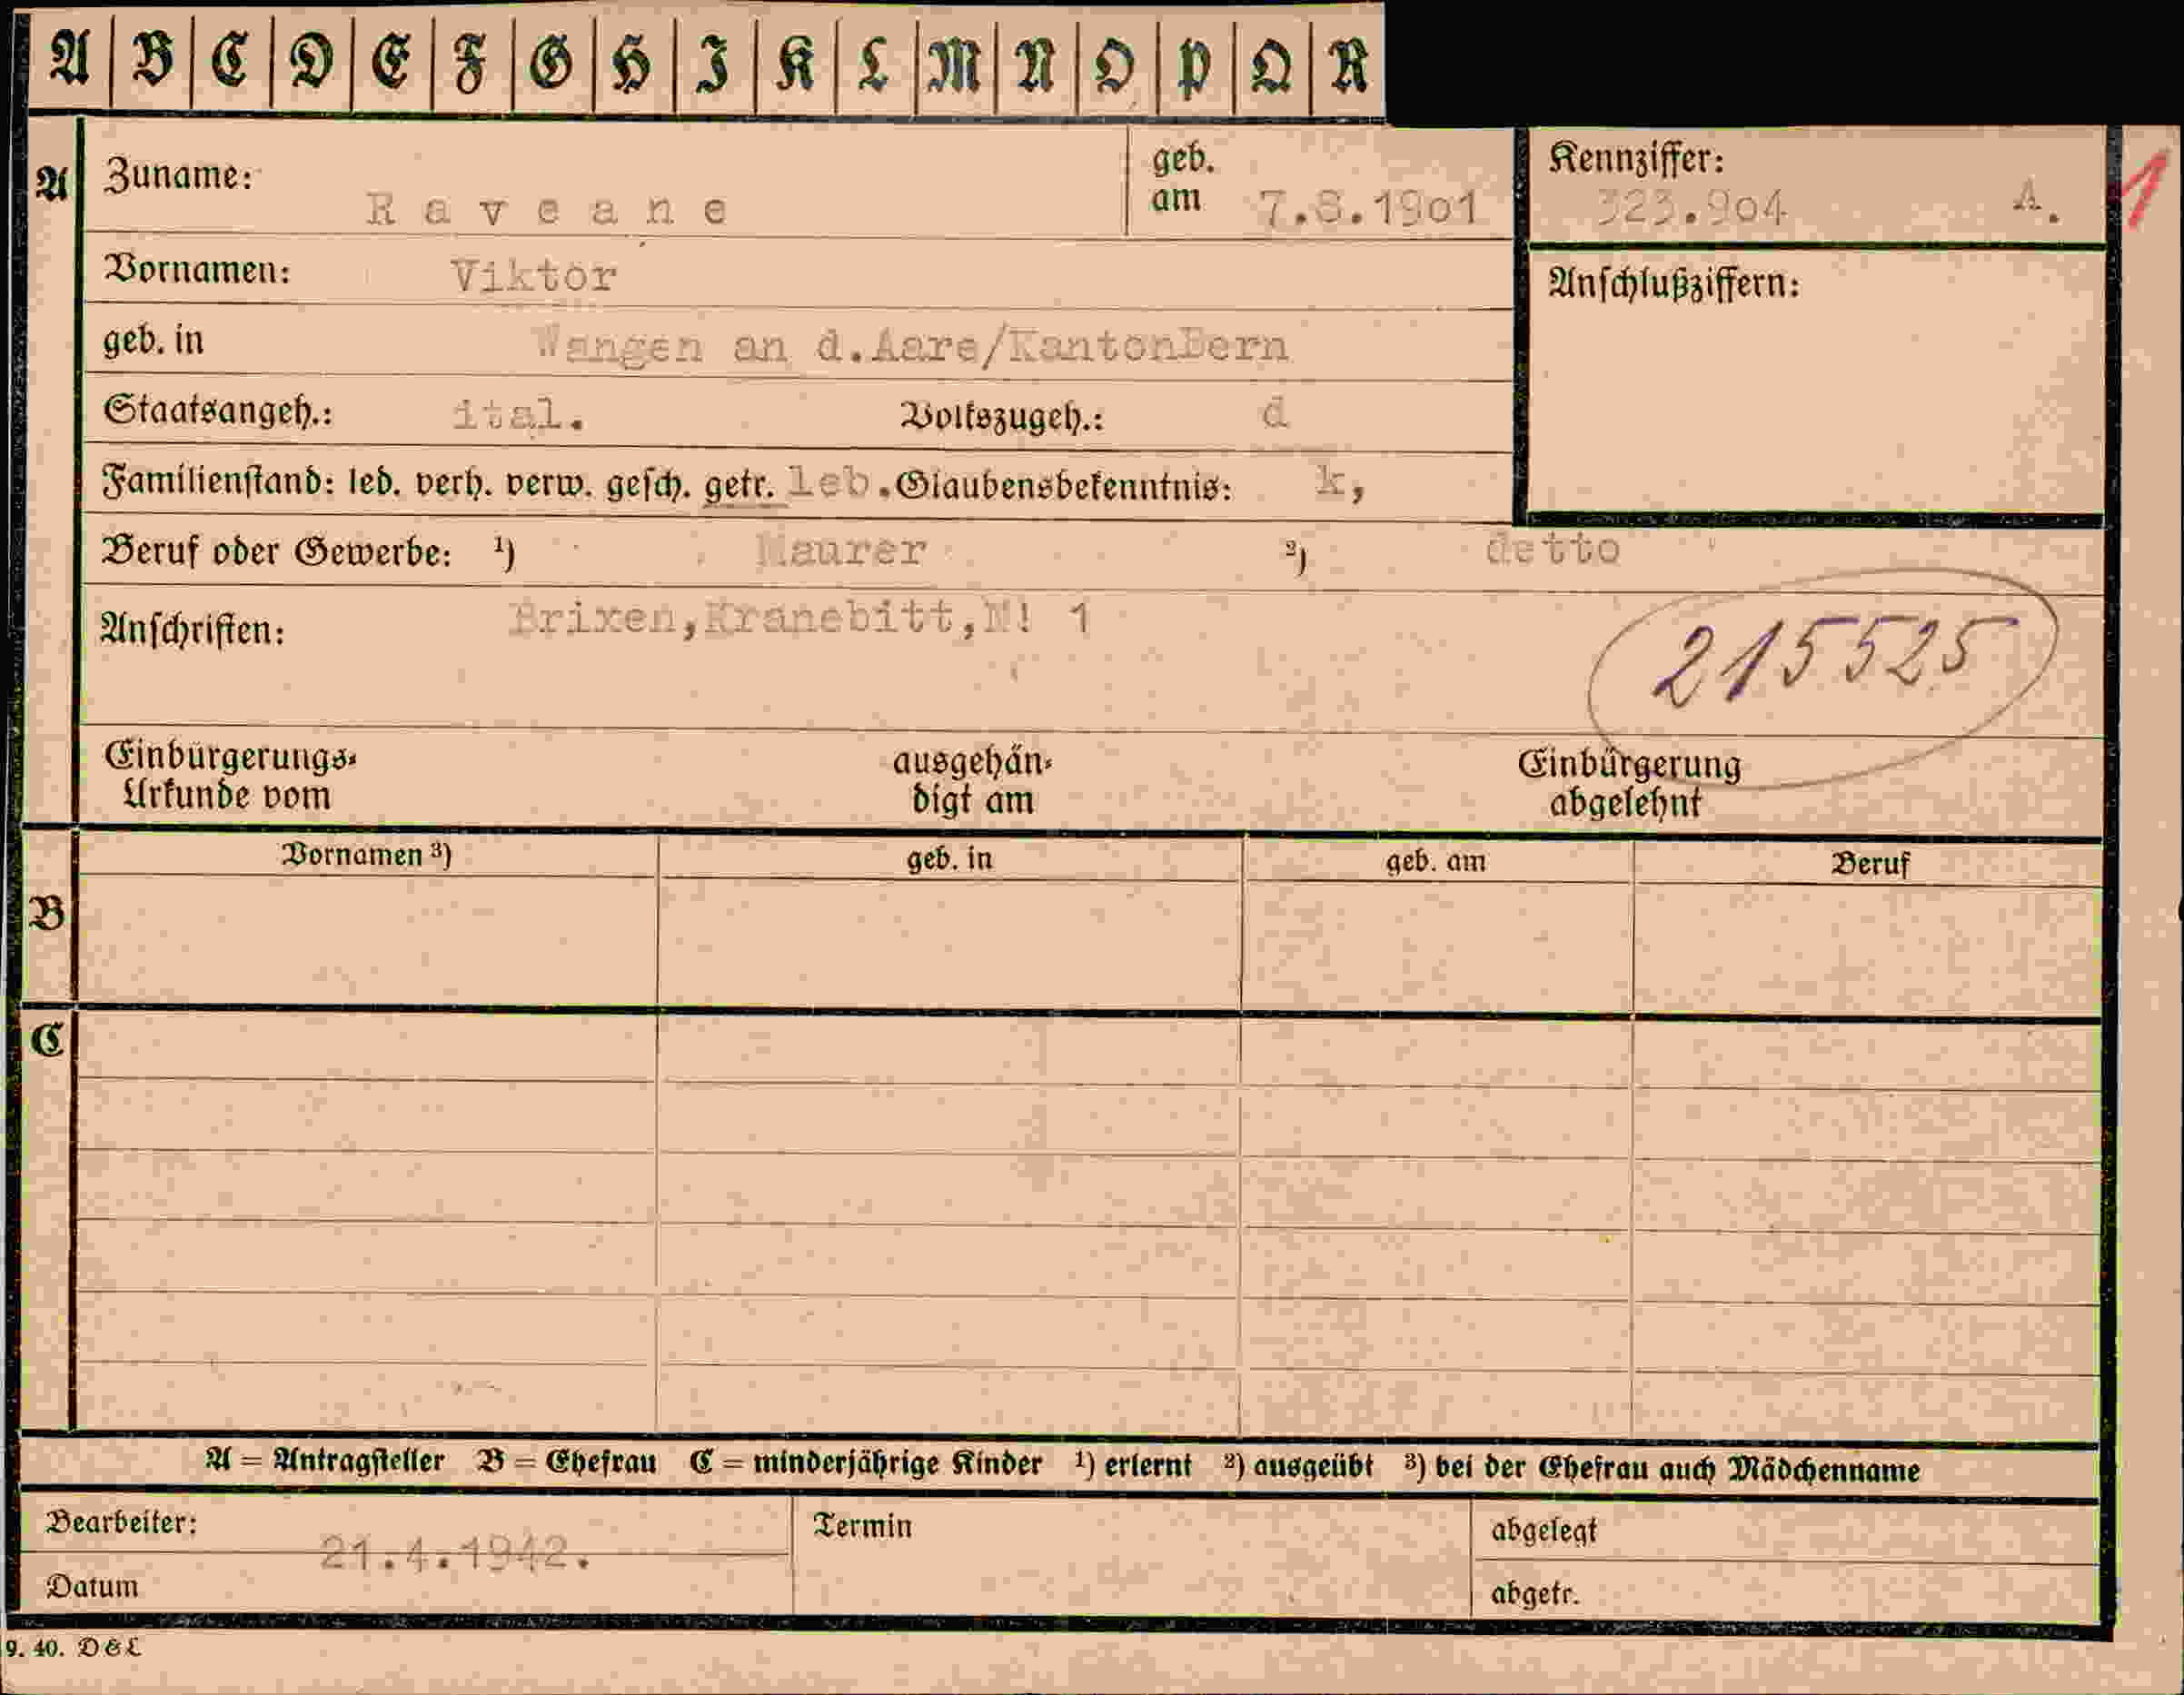 A B C D E F G H I K L M N O P Q R
A Zuname: Raveane geb. am 7.8.1901 Kennziffer: 323.904 A. 1
Vornamen: Viktor Anschlußziffern:
geb. in Wangen an d.Aare/KantonBern
Staatsangeh.: ital. Volkszugeh.: d
Familienstand: led. verh. verw. gesch. getr. leb. Glaubensbekenntnis: k,
Beruf oder Gewerbe: ¹) Maurer ²) detto
Anschriften: Brixen,Kranebitt,N! 1
215525
Einbürgerungs-
Urkunde vom
ausgehän-
digt am
Einbürgerung
abgelehnt
Vornamen ³) geb. in geb. am Beruf
B
C
A = Antragsteller B = Ehefrau C = minderjährige Kinder ¹) erlernt ²) ausgeübt ³) bei der Ehefrau auch Mädchenname
Bearbeiter: Termin abgelegt
21.4.1942.
Datum abgetr.
9. 40. D&L